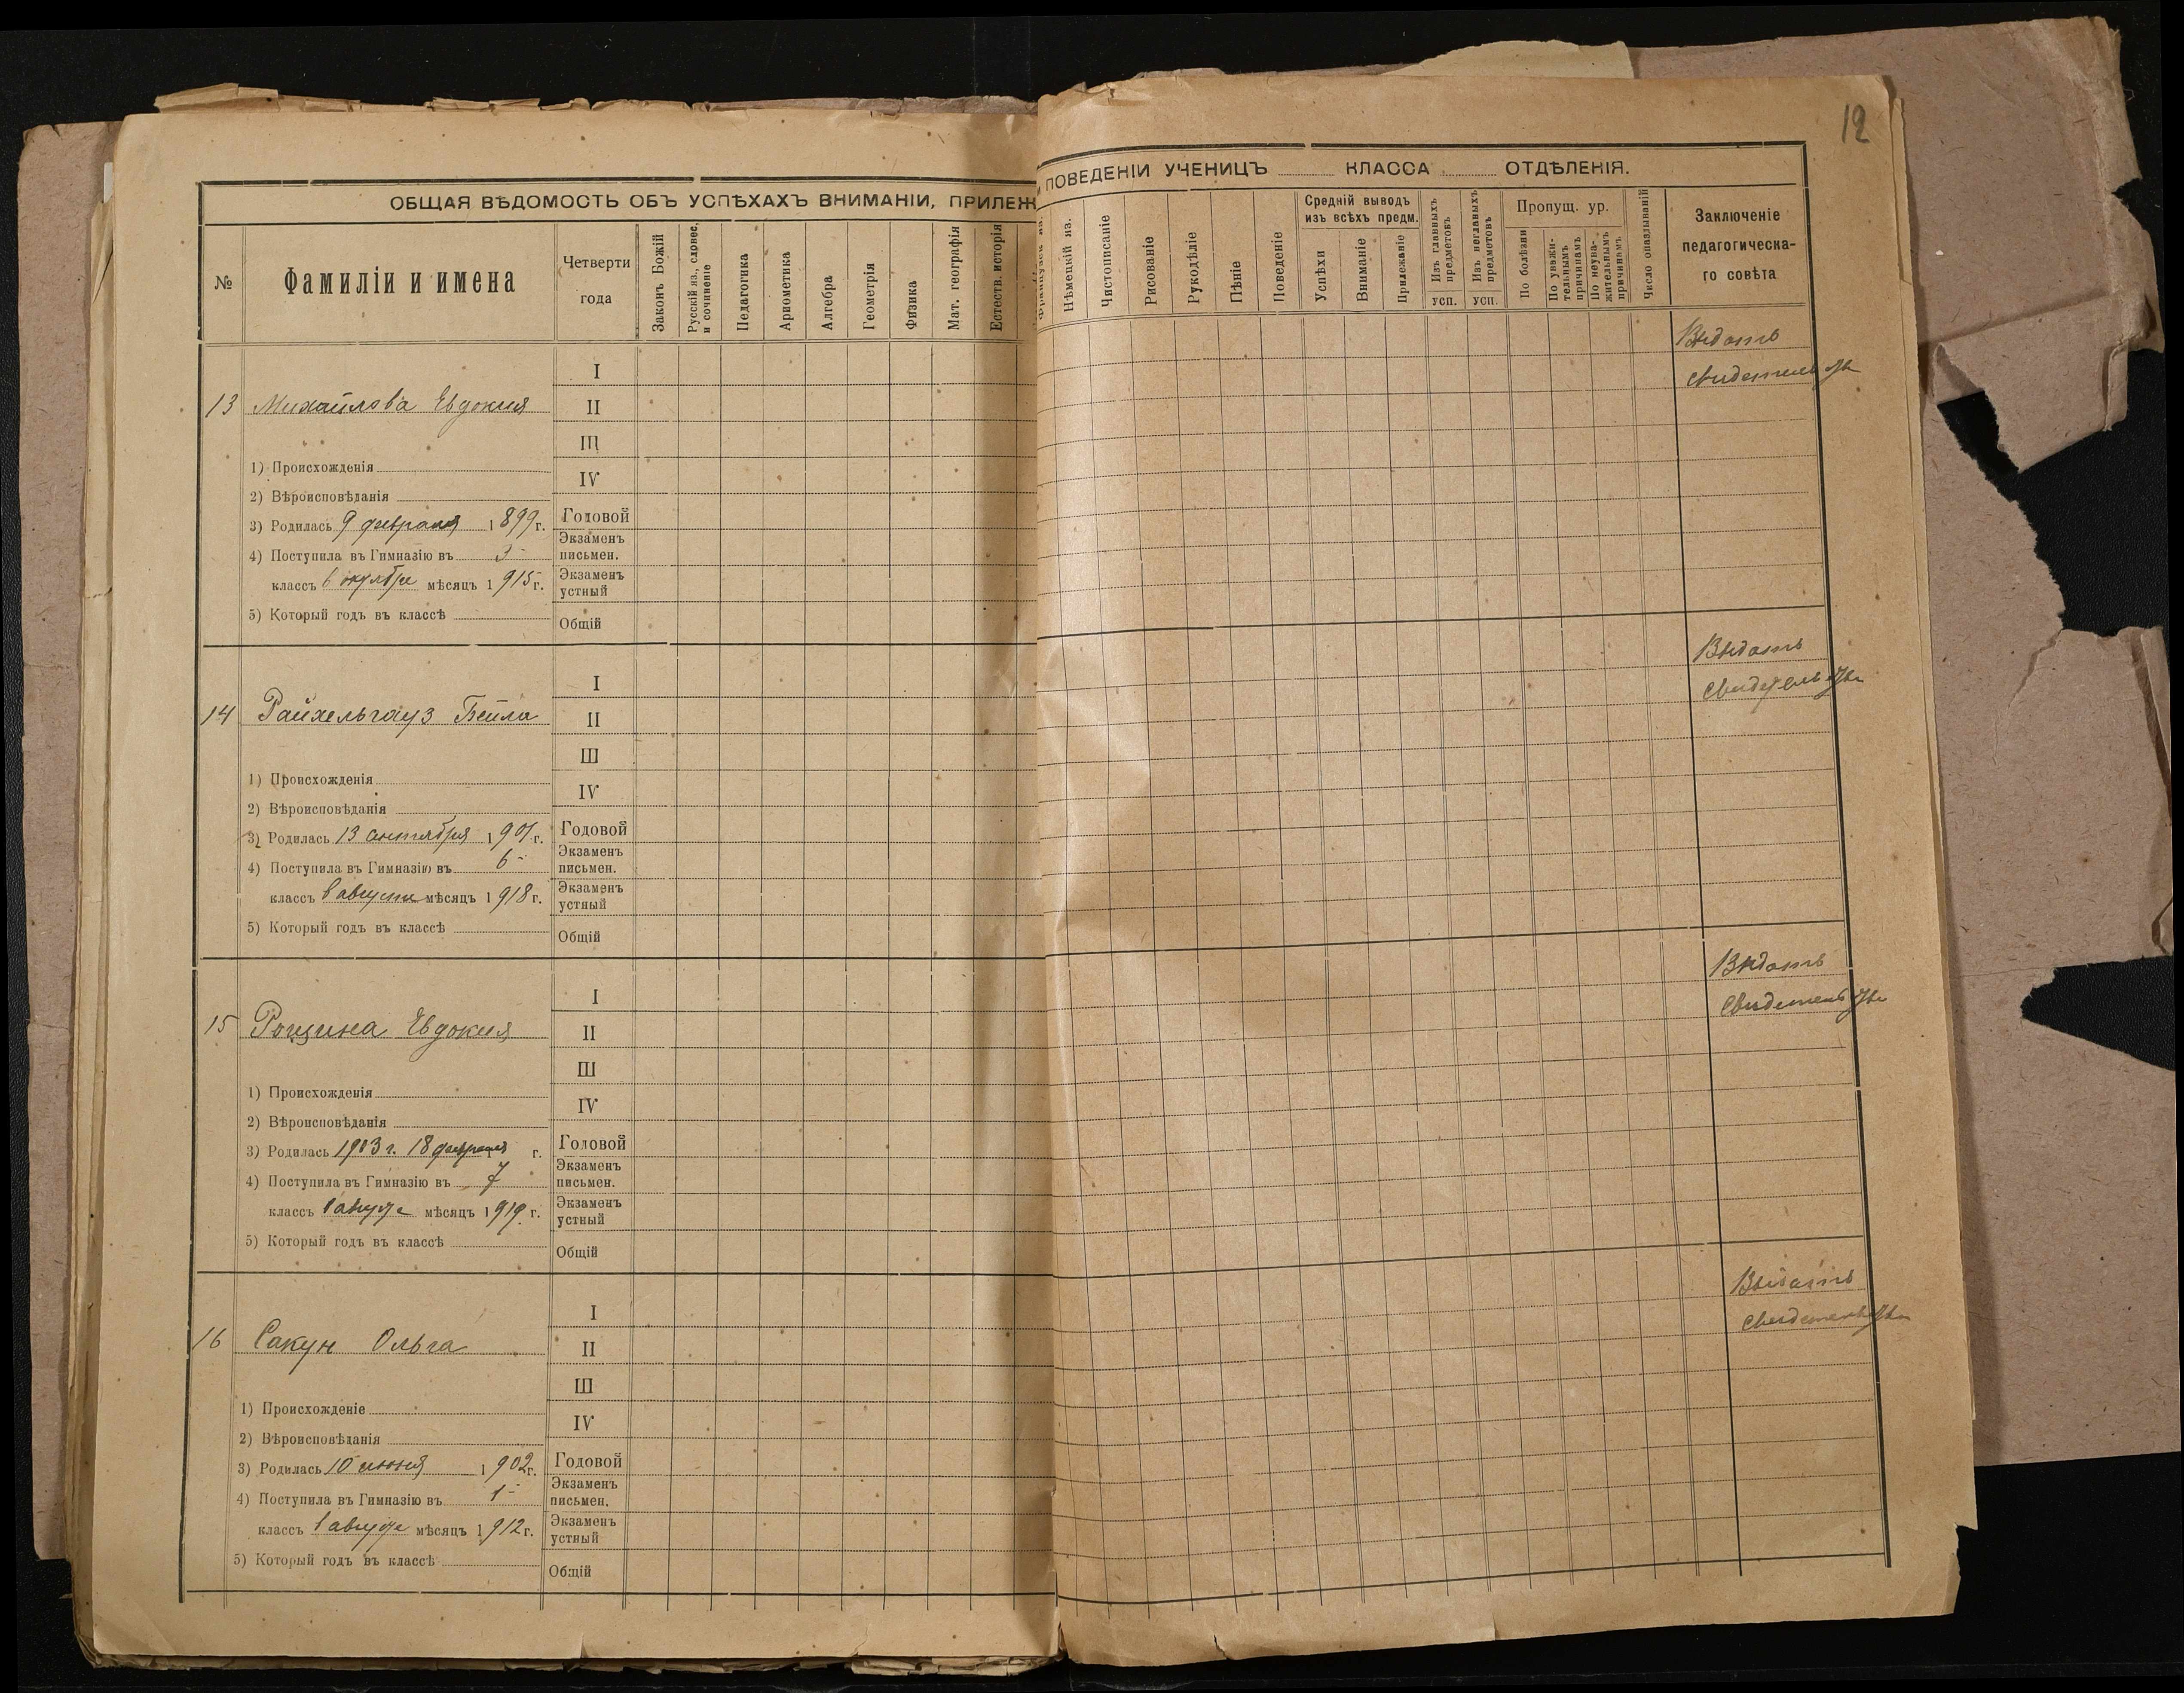 12
ОБЩАЯ ВѢДОМОСТЬ ОБЪ УСПѢХАХЪ ВНИМАНІИ, ПРИЛЕЖ
И ПОВЕДЕНІИ УЧЕНИЦЪ КЛАССА ОТДѢЛЕНІЯ.
№
Фамиліи и имена
Четверти
года
Законъ Божій
Русскій яз., словес.
и сочиненіе
Педагогика
Ариѳметика
Алгебра
Геометрія
Физика
Мат. географія
Естеств. исторія
Нѣмецкій яз.
Чистописаніе
Рисованіе
Рукодѣліе
Пѣніе
Поведеніе
Средній выводъ
изъ всѣхъ предм.
Успѣхи
Вниманіе
Прилежаніе
Изъ главныхъ
предметовъ
усп.
Изъ неглавныхъ
предметовъ
усп.
Пропущ. ур.
По болѣзни
По уважи-
тельнымъ
причинамъ
По неува-
жительнымъ
причинамъ
Число опаздываній
Заключеніе
педагогическа-
го совѣта
13 Михайлова Евдокия
1) Происхожденія
2) Вѣроисповѣданія
3) Родилась 9 февраля 1899 г.
4) Поступила въ Гимназію въ 3-
классъ в октябре мѣсяцъ 1915 г.
5) Который годъ въ классѣ
I
II
III
IV
Годовой
Экзаменъ
письмен.
Экзаменъ
устный
Общій
Выдать
свидетельство
14 Райхельгауз Бейла
1) Происхожденія
2) Вѣроисповѣданія
3) Родилась 13 сентября 1901 г.
4) Поступила въ Гимназію въ 6-
классъ в августе мѣсяцъ 1918 г.
5) Который годъ въ классѣ
I
II
III
IV
Годовой
Экзаменъ
письмен.
Экзаменъ
устный
Общій
Выдать
свидетельство
15 Рощина Евдокия
1) Происхожденія
2) Вѣроисповѣданія
3) Родилась 1903 г. 18 февраля г.
4) Поступила въ Гимназію въ 7
классъ в августе мѣсяцъ 1919 г.
5) Который годъ въ классѣ
I
II
III
IV
Годовой
Экзаменъ
письмен.
Экзаменъ
устный
Общій
Выдать
свидетельство
16 Сакун Ольга
1) Происхожденіе
2) Вѣроисповѣданія
3) Родилась 10 июня 1902 г.
4) Поступила въ Гимназію въ 1-
классъ в августе мѣсяцъ 1912 г.
5) Который годъ въ классѣ
I
II
III
IV
Годовой
Экзаменъ
письмен.
Экзаменъ
устный
Общій
Выдать
свидетельство